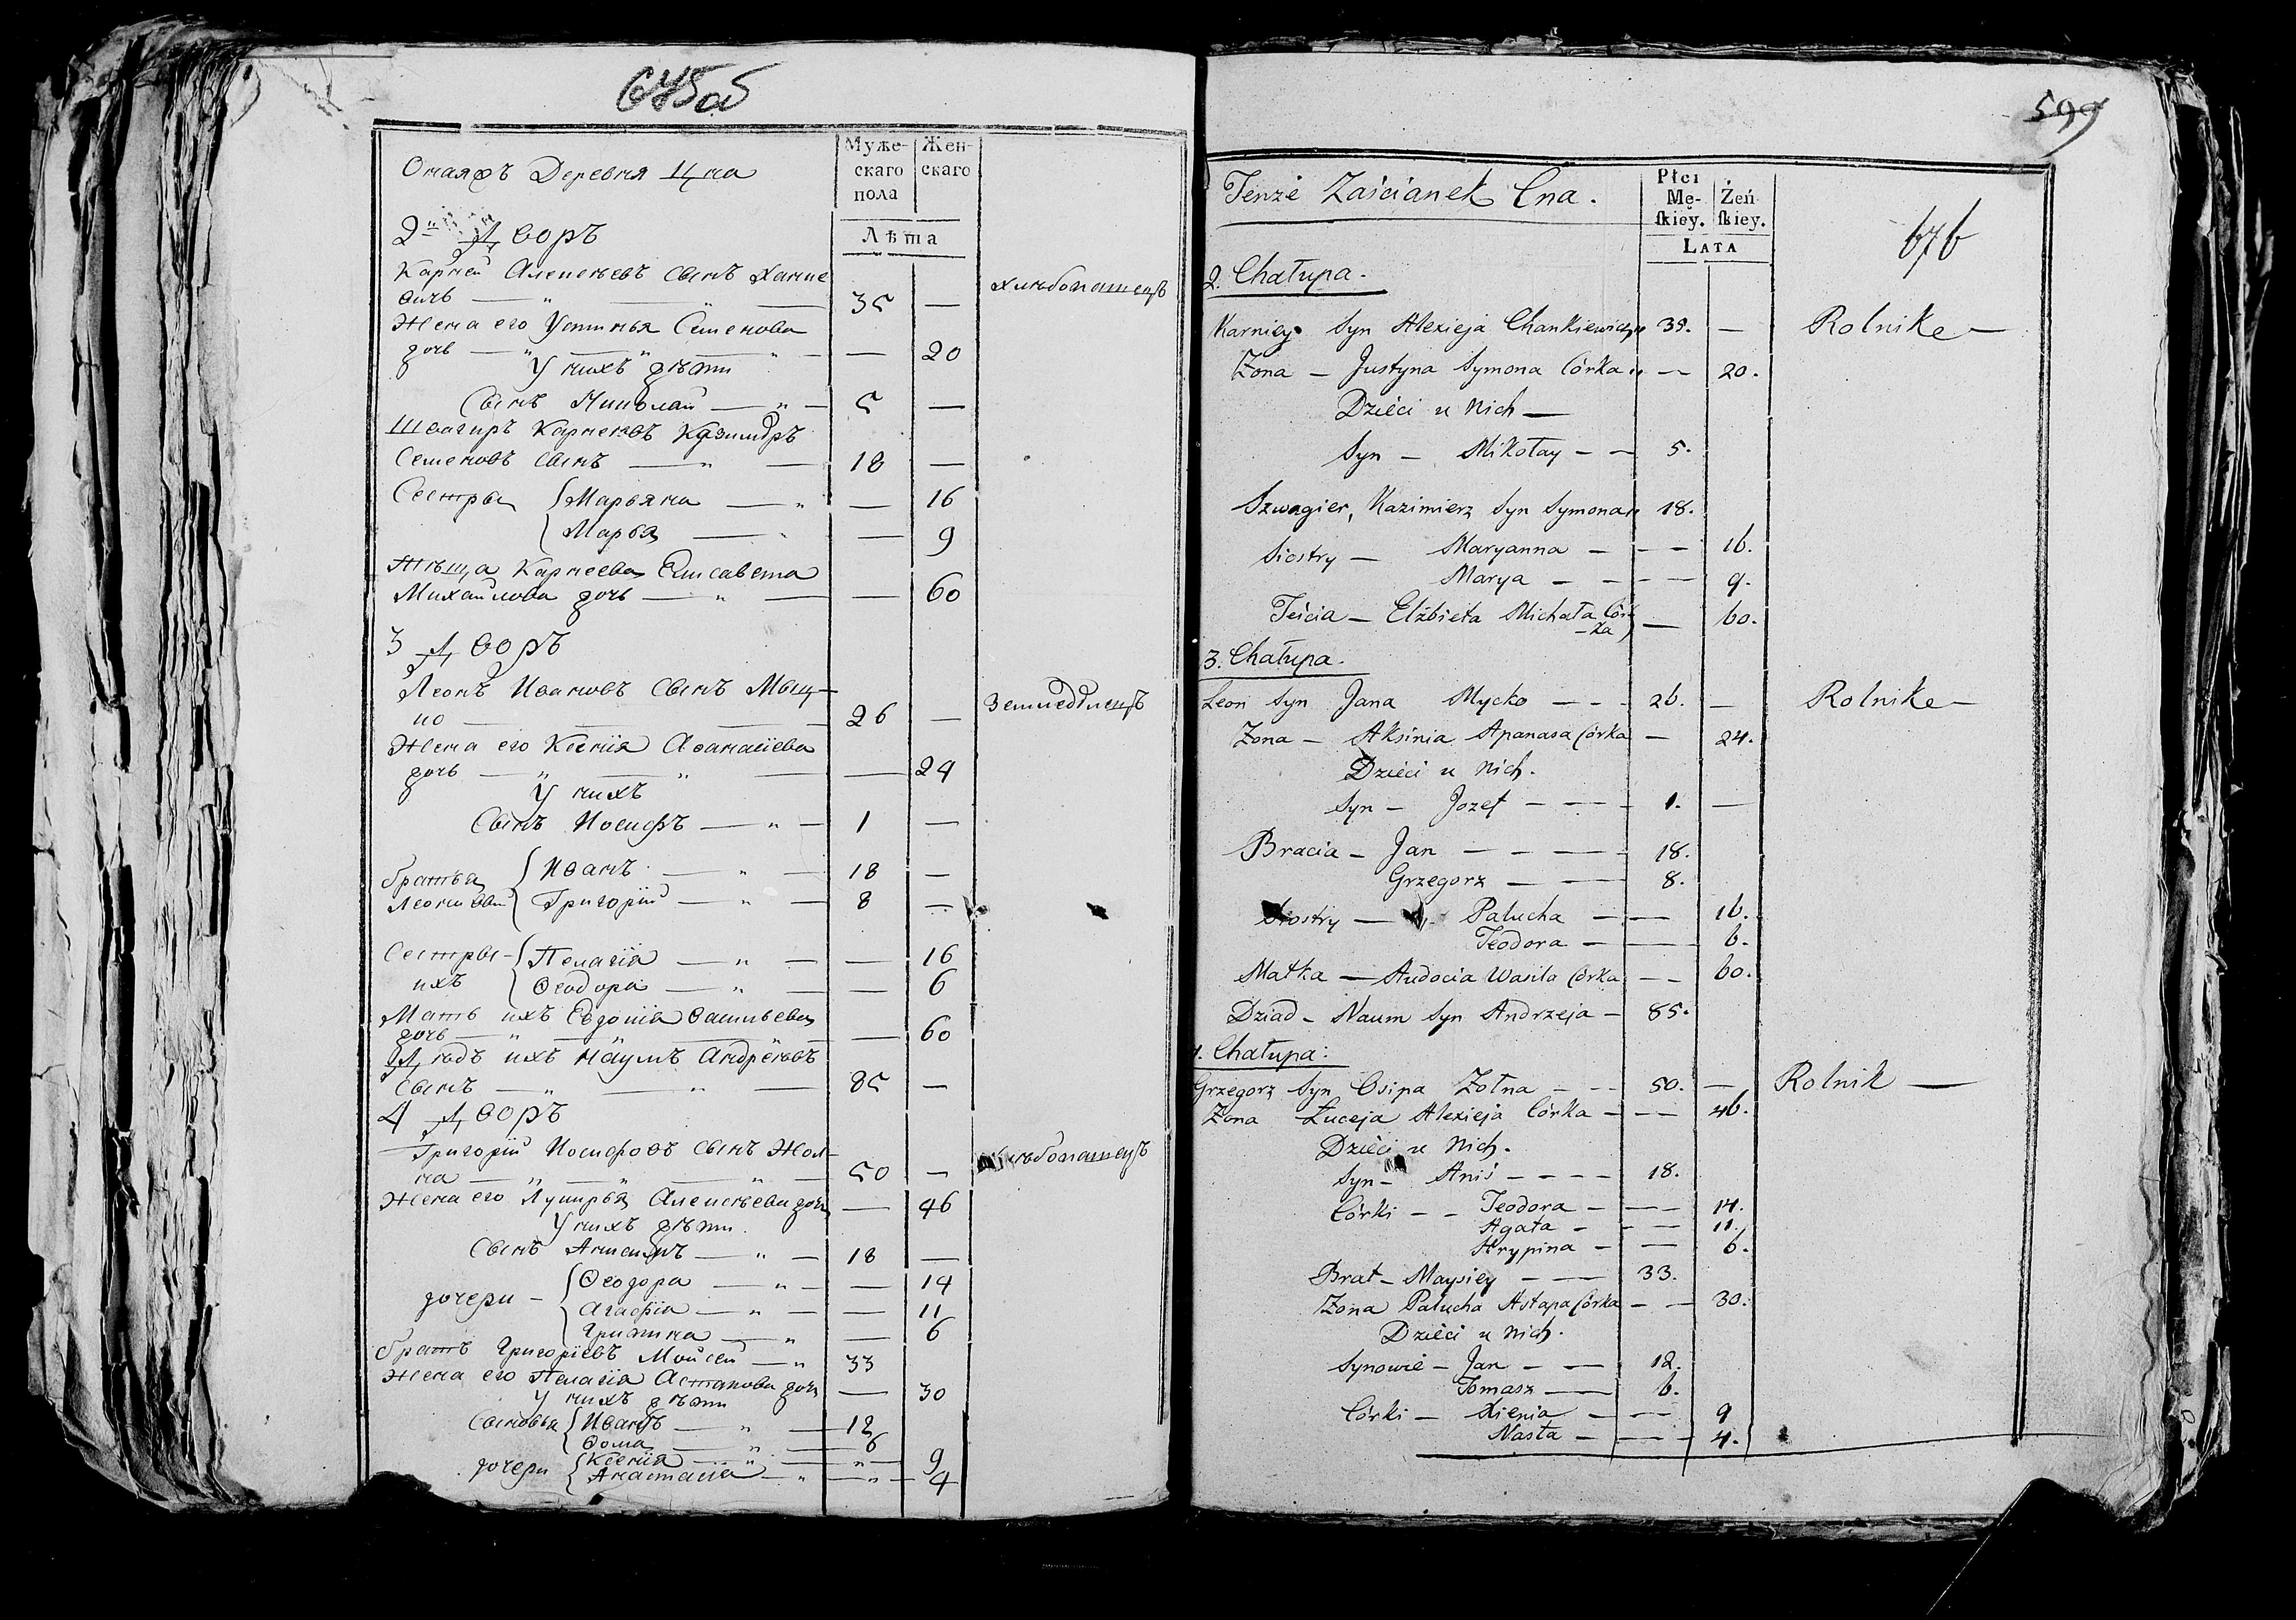 675 об
Оная же Деревня Цна
Муже-
скаго
пола
Жен-
скаго
Лѣта
2й Дворъ
Карней Алексѣевъ сынъ Ханке
вичъ — " — 35 —
хлѣбопашецъ
Жена его Устинья Семенова
дочь — " — " — — 20
У нихъ дѣти
Сынъ Николай — " — 5 —
Швагиръ Карнеевъ Казимиръ
Семеновъ сынъ — " — 18 —
Сестры Марьяна — " — — 16
Марья — " — — 9
Тѣща Карнеева Елисавета
Михайлова дочь — " — — 60
3 Дворъ
Леонъ Ивановъ сынъ Мыц-
ко — 26 —
земледѣлецъ
Жена его Ксенія Афанасіева
дочь — " — " — — 24
У нихъ
Сынъ Иосифъ — " — 1 —
братья Иванъ — " — 18 —
Леоновы Григорій — " — 8 —
Сестры Пелагія — " — — 16
ихъ Ѳеодора — " — — 6
Мать ихъ Евдокія Васильева
дочь — " — 60
Дѣдъ ихъ Наумъ Андреевъ
сынъ — " — " — 85 —
4 Дворъ
Григорій Иосифовъ сынъ Жол-
на — " — " — " — 50 —
хлѣбопашецъ
Жена его Лукирья Алексѣева дочь — 46
У нихъ дѣти
Сынъ — " — 18 —
дочери – Ѳеодора — " — — 14
Агафія — " — — 11
— " — 6
братъ Григоріевъ Мойсей — " 33
Жена его Пелагія Астапова дочь — 30
У нихъ дѣти
Сыновья Иванъ — " — 12
Ѳома — " — 6
дочери Ксенія — " — " — 9
Анастасія — " — " — 4
599
Tenże Zaścianek Cna.
Płci
Mę-
skiey.
Żeń
skiey.
LATA
676
2. Chałupa.
Karniey Syn Alexieja Chankiewicz 39. — Rolnik —
Żona – Justyna Symona Córka — 20.
Dzieci u Nich —
Syn – Mikołay – – 5.
Szwagier, Kazimierz Syn Symona 18.
Siostry – Maryanna – – – 16.
Marya – – – – 9.
Teścia – Elżbieta Michała Cór
-ka — 60.
3. Chałupa.
Leon Syn Jana Mycko – – – 26. — Rolnik —
Żona – Aksinia Apanasa Córka — 24.
Dzieci u Nich.
Syn – Jozef – – – 1. —
Bracia – Jan – – – – 18.
Grzegorz – – 8.
Siostry — Palucha – – 16.
Teodora – – 6.
Matka — Audocia Wasila Córka – – 60.
Dziad – Naum Syn Andrzeja – 85.
4. Chałupa:
Grzegorz Syn Osipa Żołna – – 50. — Rolnik —
Żona Łuceja Alexieja Córka – – – 46.
Dzieci u Nich.
Syn – Aniś – – – – 18.
Córki – – Teodora – – – 14.
Agata – – – 11.
Hrypina – – 6.
Brat – Maysiey – – 33.
Żona Palucha Astapa Córka – – 30.
Dzieci u Nich.
Synowie – Jan – – 12.
Tomasz — 6.
Córki – Xienia – – – 9
Nasta – – – – 4.